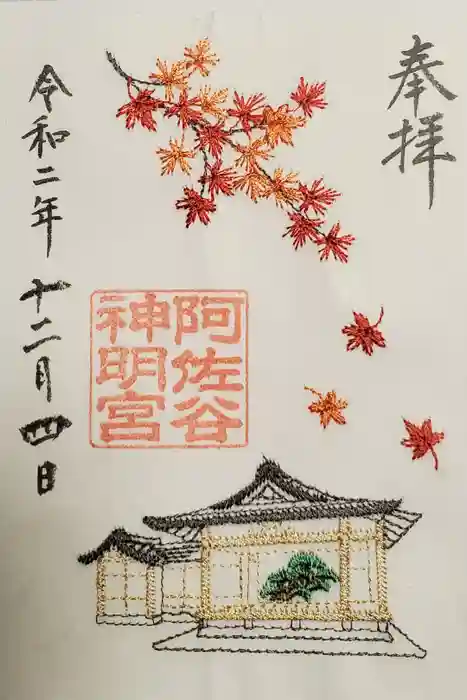 奉拝
阿佐谷
神明宮
令和二年十二月四日